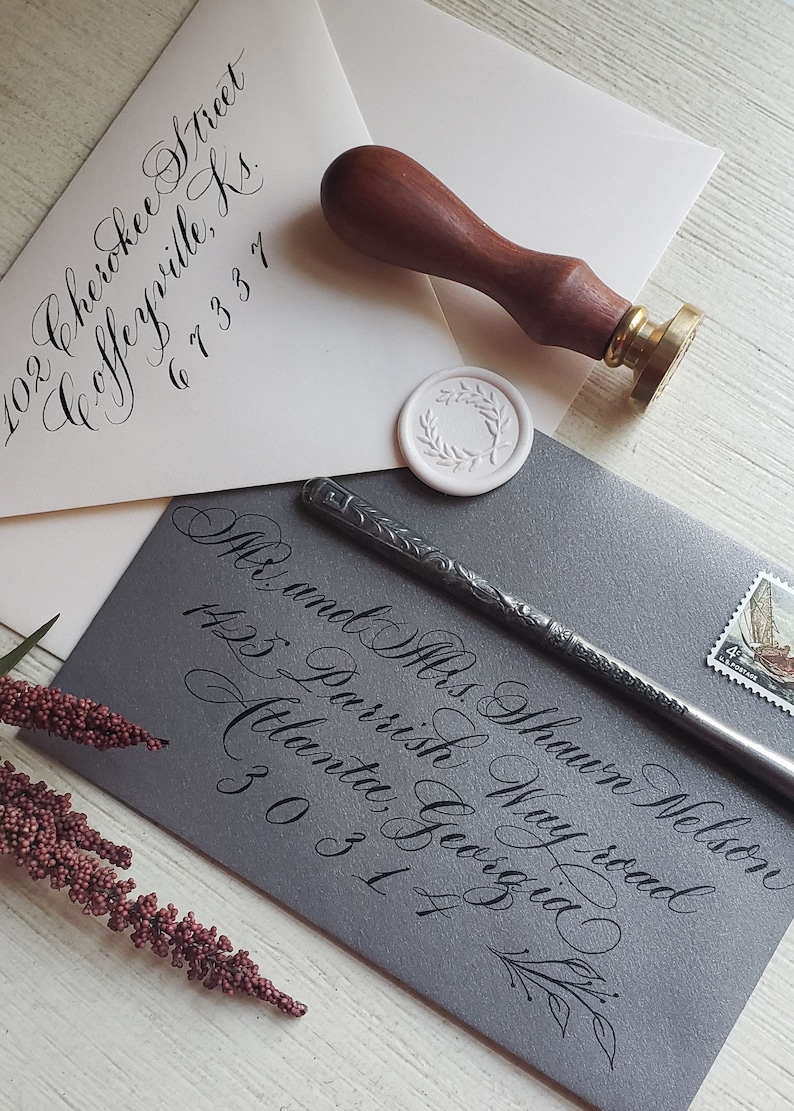 102 Cherokee Street
Coffeyville, Ks.
67337
Mr. and Mrs. Shawn Nelson
1425 Parrish Way road
Atlanta, Georgia
30314
4c
U.S. POSTAGE